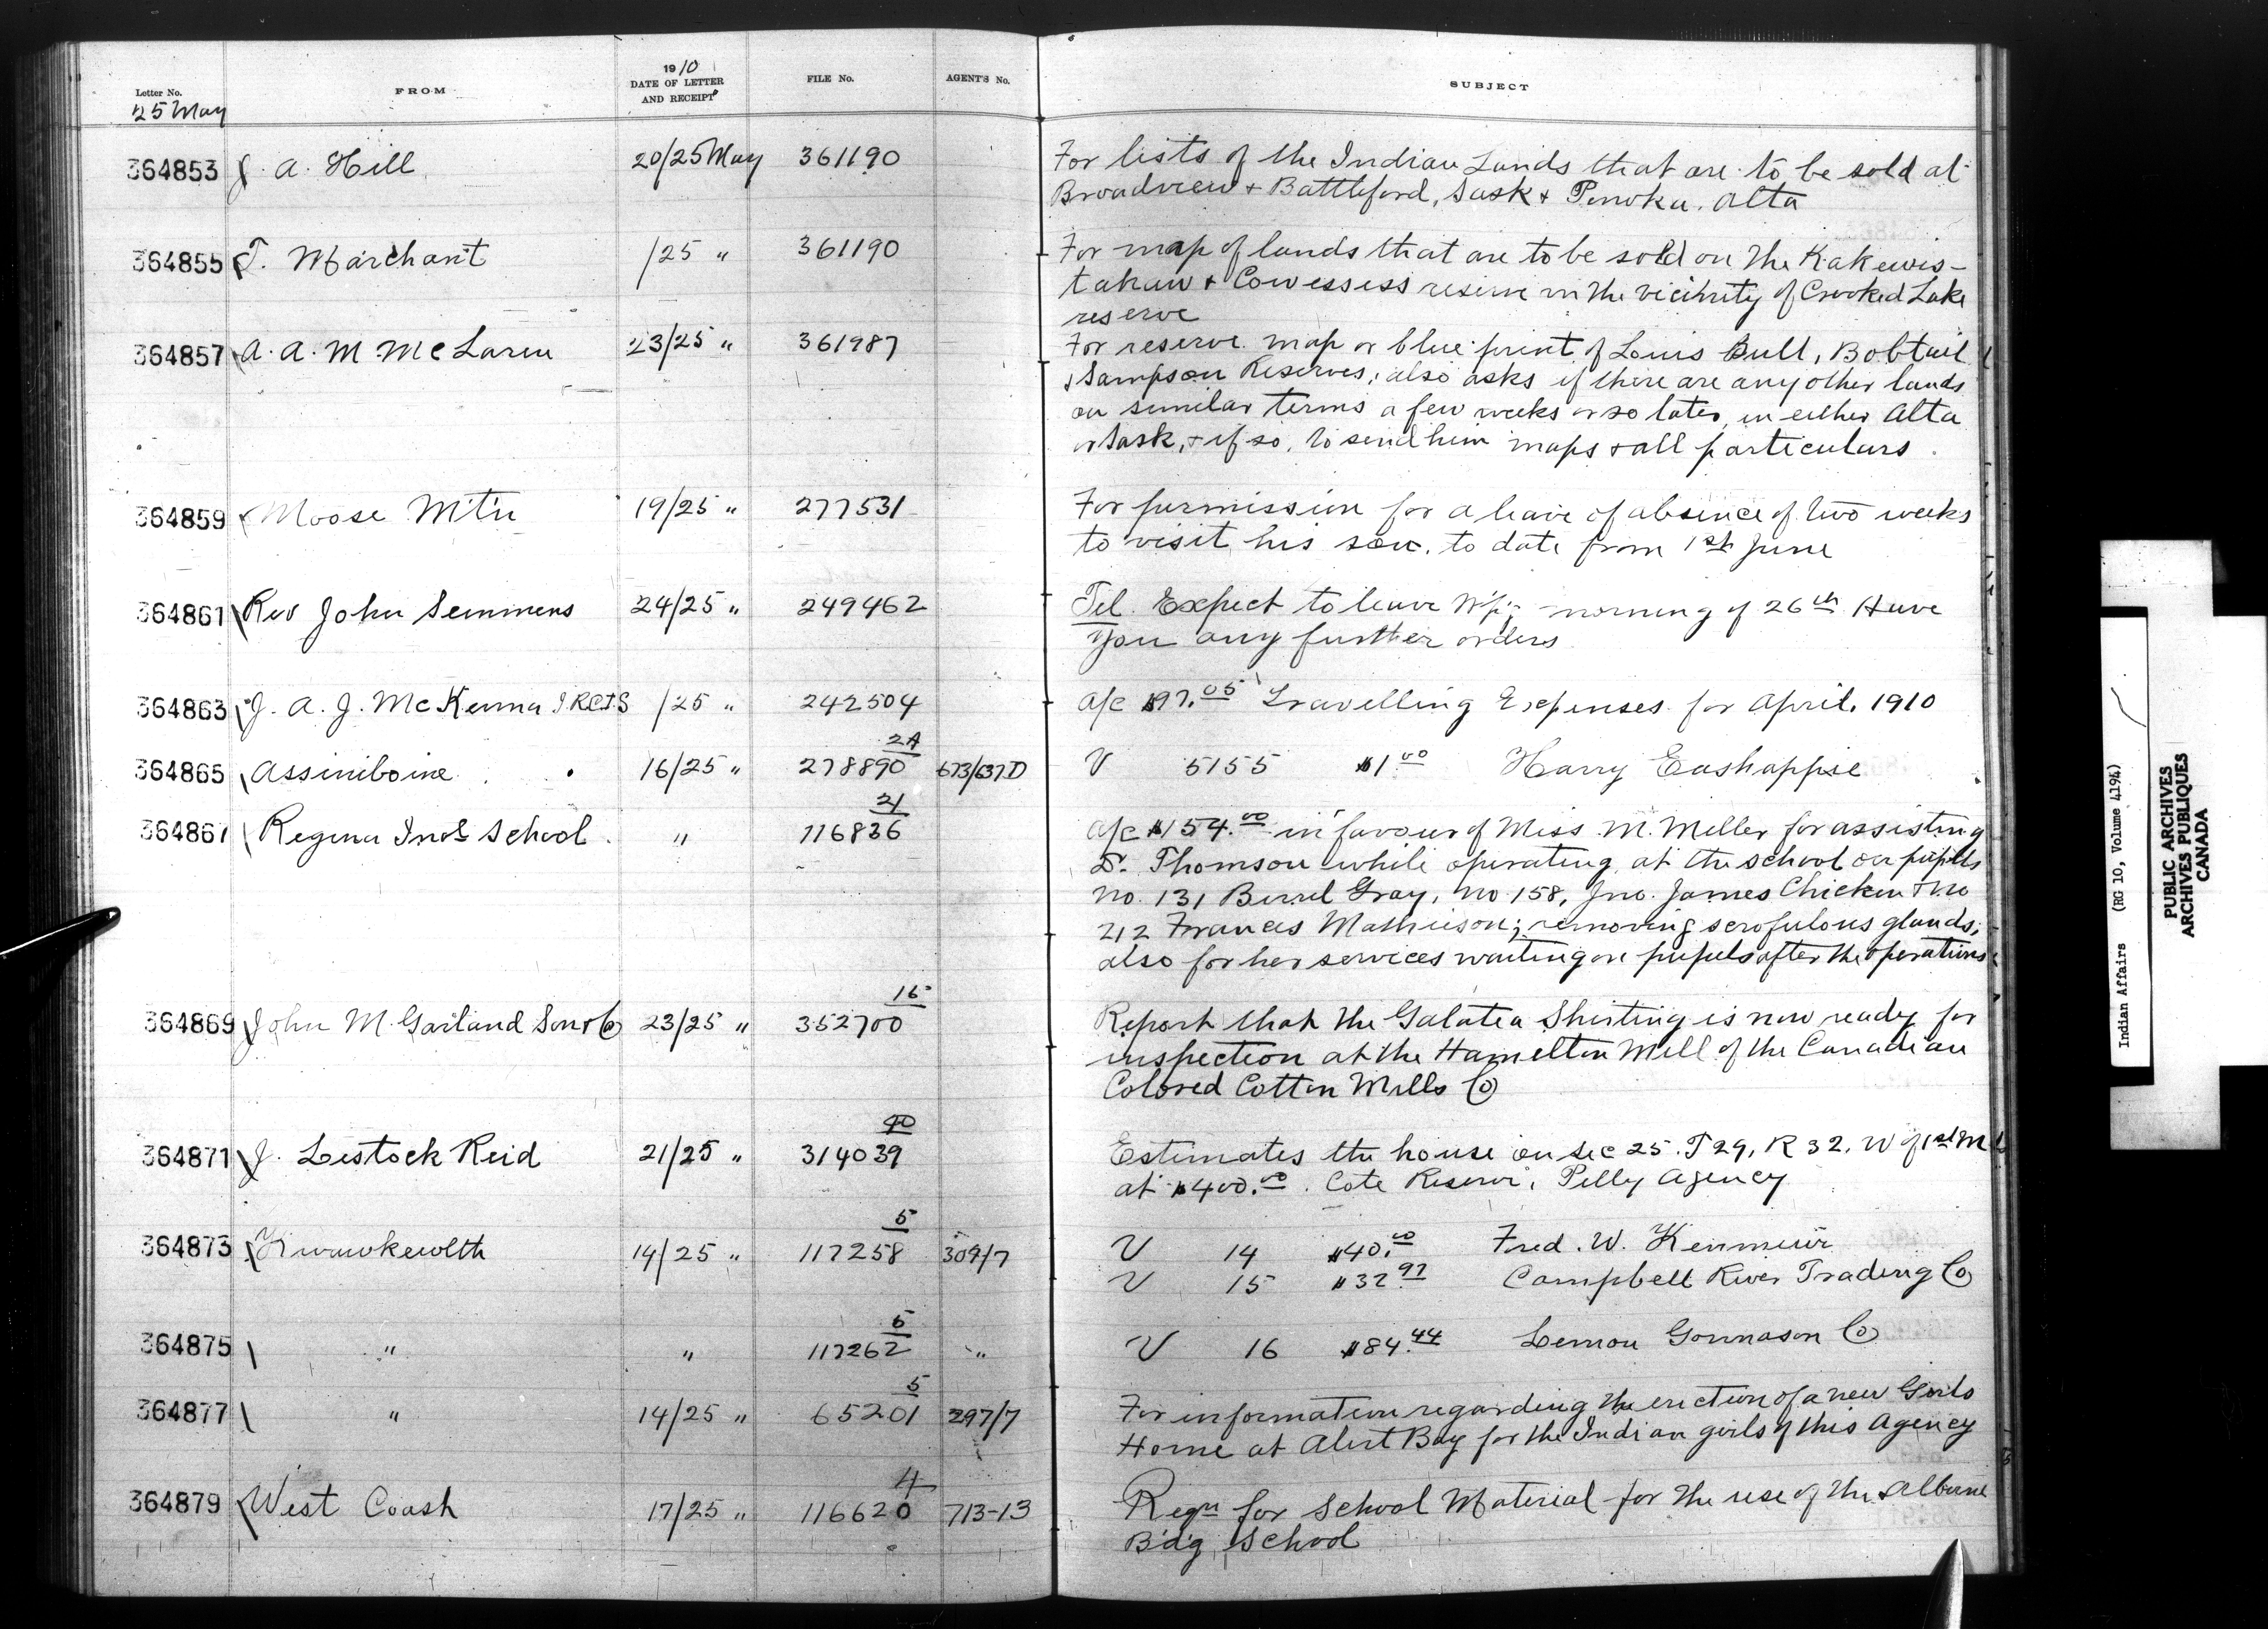 Letter No.
25 May
FROM
1910
DATE OF LETTER
AND RECEIPT
FILE No.
AGENT'S No.
SUBJECT
364853 J. A. Hill 20/25 May 361190 For lists of the Indian Lands that are to be sold at
Broadview + Battleford, Sask + Ponoka. Alta
364855 T. Marchant /25 " 361190 For map of lands that are to be sold on the Kakewis-
tahaw + Cowessess reserve in the vicinity of Crooked Lake
reserve
364857 A. A. M McLaren 23/25 " 361987 For reserve map or blue print of Louis Bull, Bobtail
+ Sampson Reserves; also asks if there are any other lands
on similar terms a few weeks or so later, in either Alta
or Sask, + if so, to send him maps + all particulars.
364859 Moose Mtn 19/25 " 277531 For permission for a leave of absence of two weeks
to visit his son. to date from 1st June
364861 Rev John Semmens 24/25 " 249462 Tel. Expect to leave Wpg morning of 26th Have
you any further orders
364863 J. A. J. McKenna I.R.C.I.S /25 " 242504 a/c $97.05 Travelling Expenses for April. 1910
24
364865 Assiniboine 16/25 " 278890 673/637D V 5155 $1.00 Harry Eashappie
21
364867 Regina Indl School " 116836 a/c $154.00 in favour of Miss M. Miller for assisting
Dr. Thomson while operating at the school on pupils
No. 131 Burrel Gray, No 158, Jno. James Chicken + No
212 Frances Mathieson; removing scrofulous glands;
also for her services waiting on pupils after the operations
15
364869 John M. Garland Son + Co 23/25 " 352700 Report that the Galatea Shirting is now ready for
inspection at the Hamilton Mill of the Canadian
Colored Cotton Mills Co
40
364871 J. Lestock Reid 21/25 " 314039 Estimates the house on Sec 25. T 29, R 32. W of 1st M
at $400.00. Cote Reserve, Pelly Agency
5
364873 Kwawkewlth 14/25 " 117258 309/7 V 14 $40.00 Fred. W. Kenmuir
V 15 $32.97 Campbell River Trading Co
5
364875 " " 117262 " V 16 $84.44 Lemon Gonnason Co
5
364877 " 14/25 " 65201 297/7 For information regarding the erection of a new Girls
Home at Alert Bay for the Indian girls of this Agency
4
364879 West Coast 17/25 " 116620 713-13 Reqn for School Material for the use of the Alberni
Bdg School
Indian Affairs (RG 10, Volume 4194)
PUBLIC ARCHIVES
ARCHIVES PUBLIQUES
CANADA